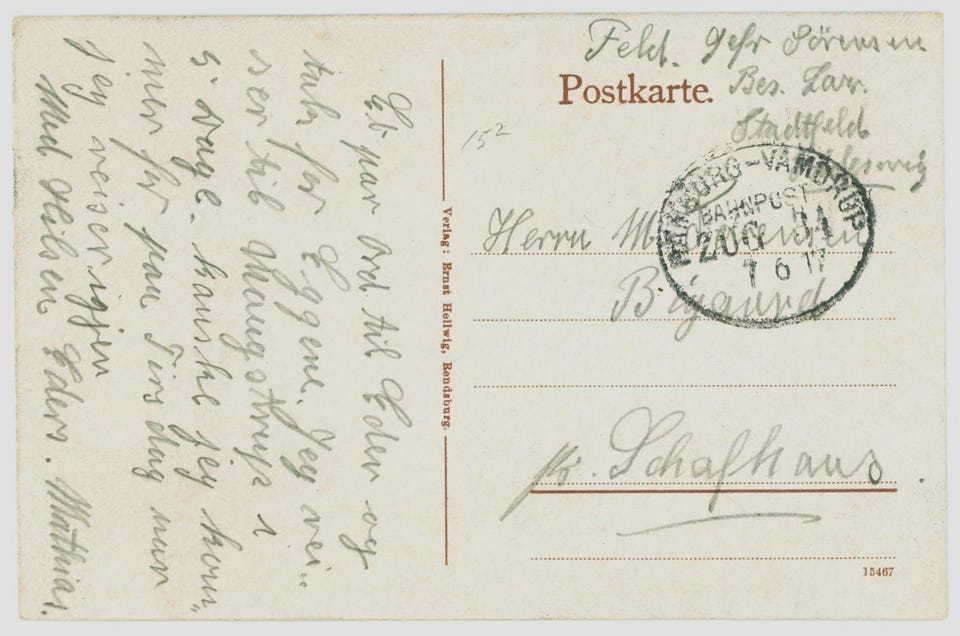 Feld. Gefr Sörensen
Bes. Laz.
Stadtfeld
Postkarte.
152
HAMBURG-VAMDRUP
BAHNPOST
ZUG
7 6 17
Herrn M.
pr. Schafhaus
Verlag: Ernst Hellwig, Rendsburg.
15467
Et par Ord til Eder og
tak for Eggene. Jeg rei-
ser til Maugstrup i
5 Dage. kanske jeg kom-
mer for paa Tirsdag nar
jeg reiser igjen
Med Hilsen Eders. Matthias.